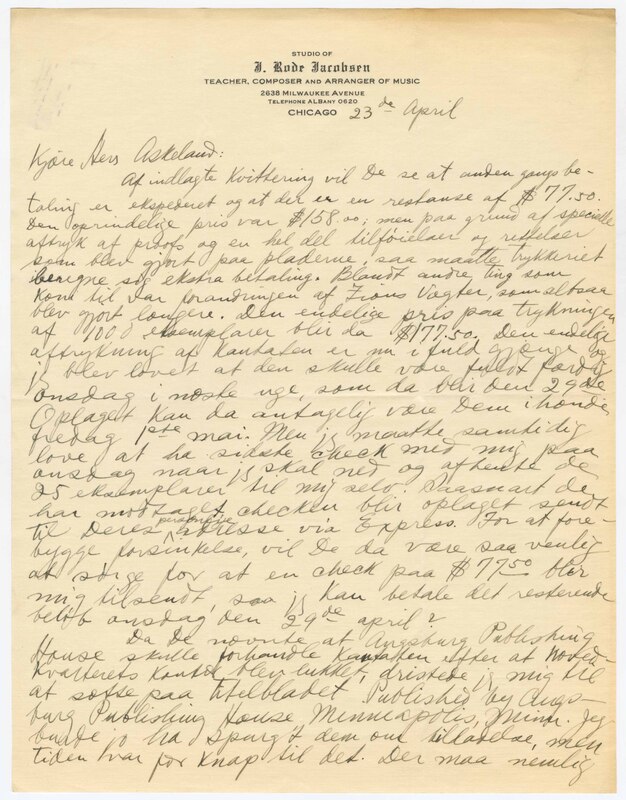 STUDIO OF
J. Rode Jacobsen
TEACHER, COMPOSER AND ARRANGER OF MUSIC
2638 MILWAUKEE AVENUE
TELEPHONE ALBANY 0620
CHICAGO 23de April
Kjære Herr Askeland:
Af indlagte Kvittering vil De se at anden gangs be-
taling er ekspederet og at der er en restanse af $77.50.
Den oprindelige pris var $158.00; men paa grund af specielle
aftryk af proofs og en hel del tilföielser og rettelser
som blev gjort paa pladerne, saa maatte trykkeriet
beregne sig ekstra betaling. Blandt andre ting som
kom til var forandringen af Zions Vægter, som altsaa
blev gjort længere. Den endelige pris paa trykningen
af 1000 eksemplarer blir da $177.50. Den endelige
aftrykning af kantaten er nu i fuld gjænge og
jeg blev lovet at den skulle være fuldt færdig
onsdag i næste uge, som da blir den 29de
Oplaget kan da antagelig være Dem ihænde
fredag 1ste mai. Men jeg maatte samtidig
love at ha sidste check med mig paa
onsdag naar jeg skal ned og afhente de
25 eksemplarer til mig selv. Saasnart de
har mottaget checken blir oplaget sendt
til Deres adresse via Express. For at fore-
bygge forsinkelse, vil De da være saa venlig
at sørge for at en check paa $77.50 blir
mig tilsendt, saa jeg kan betale det resterende
beløb onsdag den 29de april?
Da De nævnte at Augsburg Publishing
House skulle forhandle Kantaten efter at Noveda-
Kvarterets kontor blev lukket, dristede jeg mig til
at sætte paa titelbladet Published by Augs-
burg Publishing House Minneapolis, Minn. Jeg
burde jo ha spurgt dem om tilladelse, men
tiden var for knap til det. Der maa nemlig